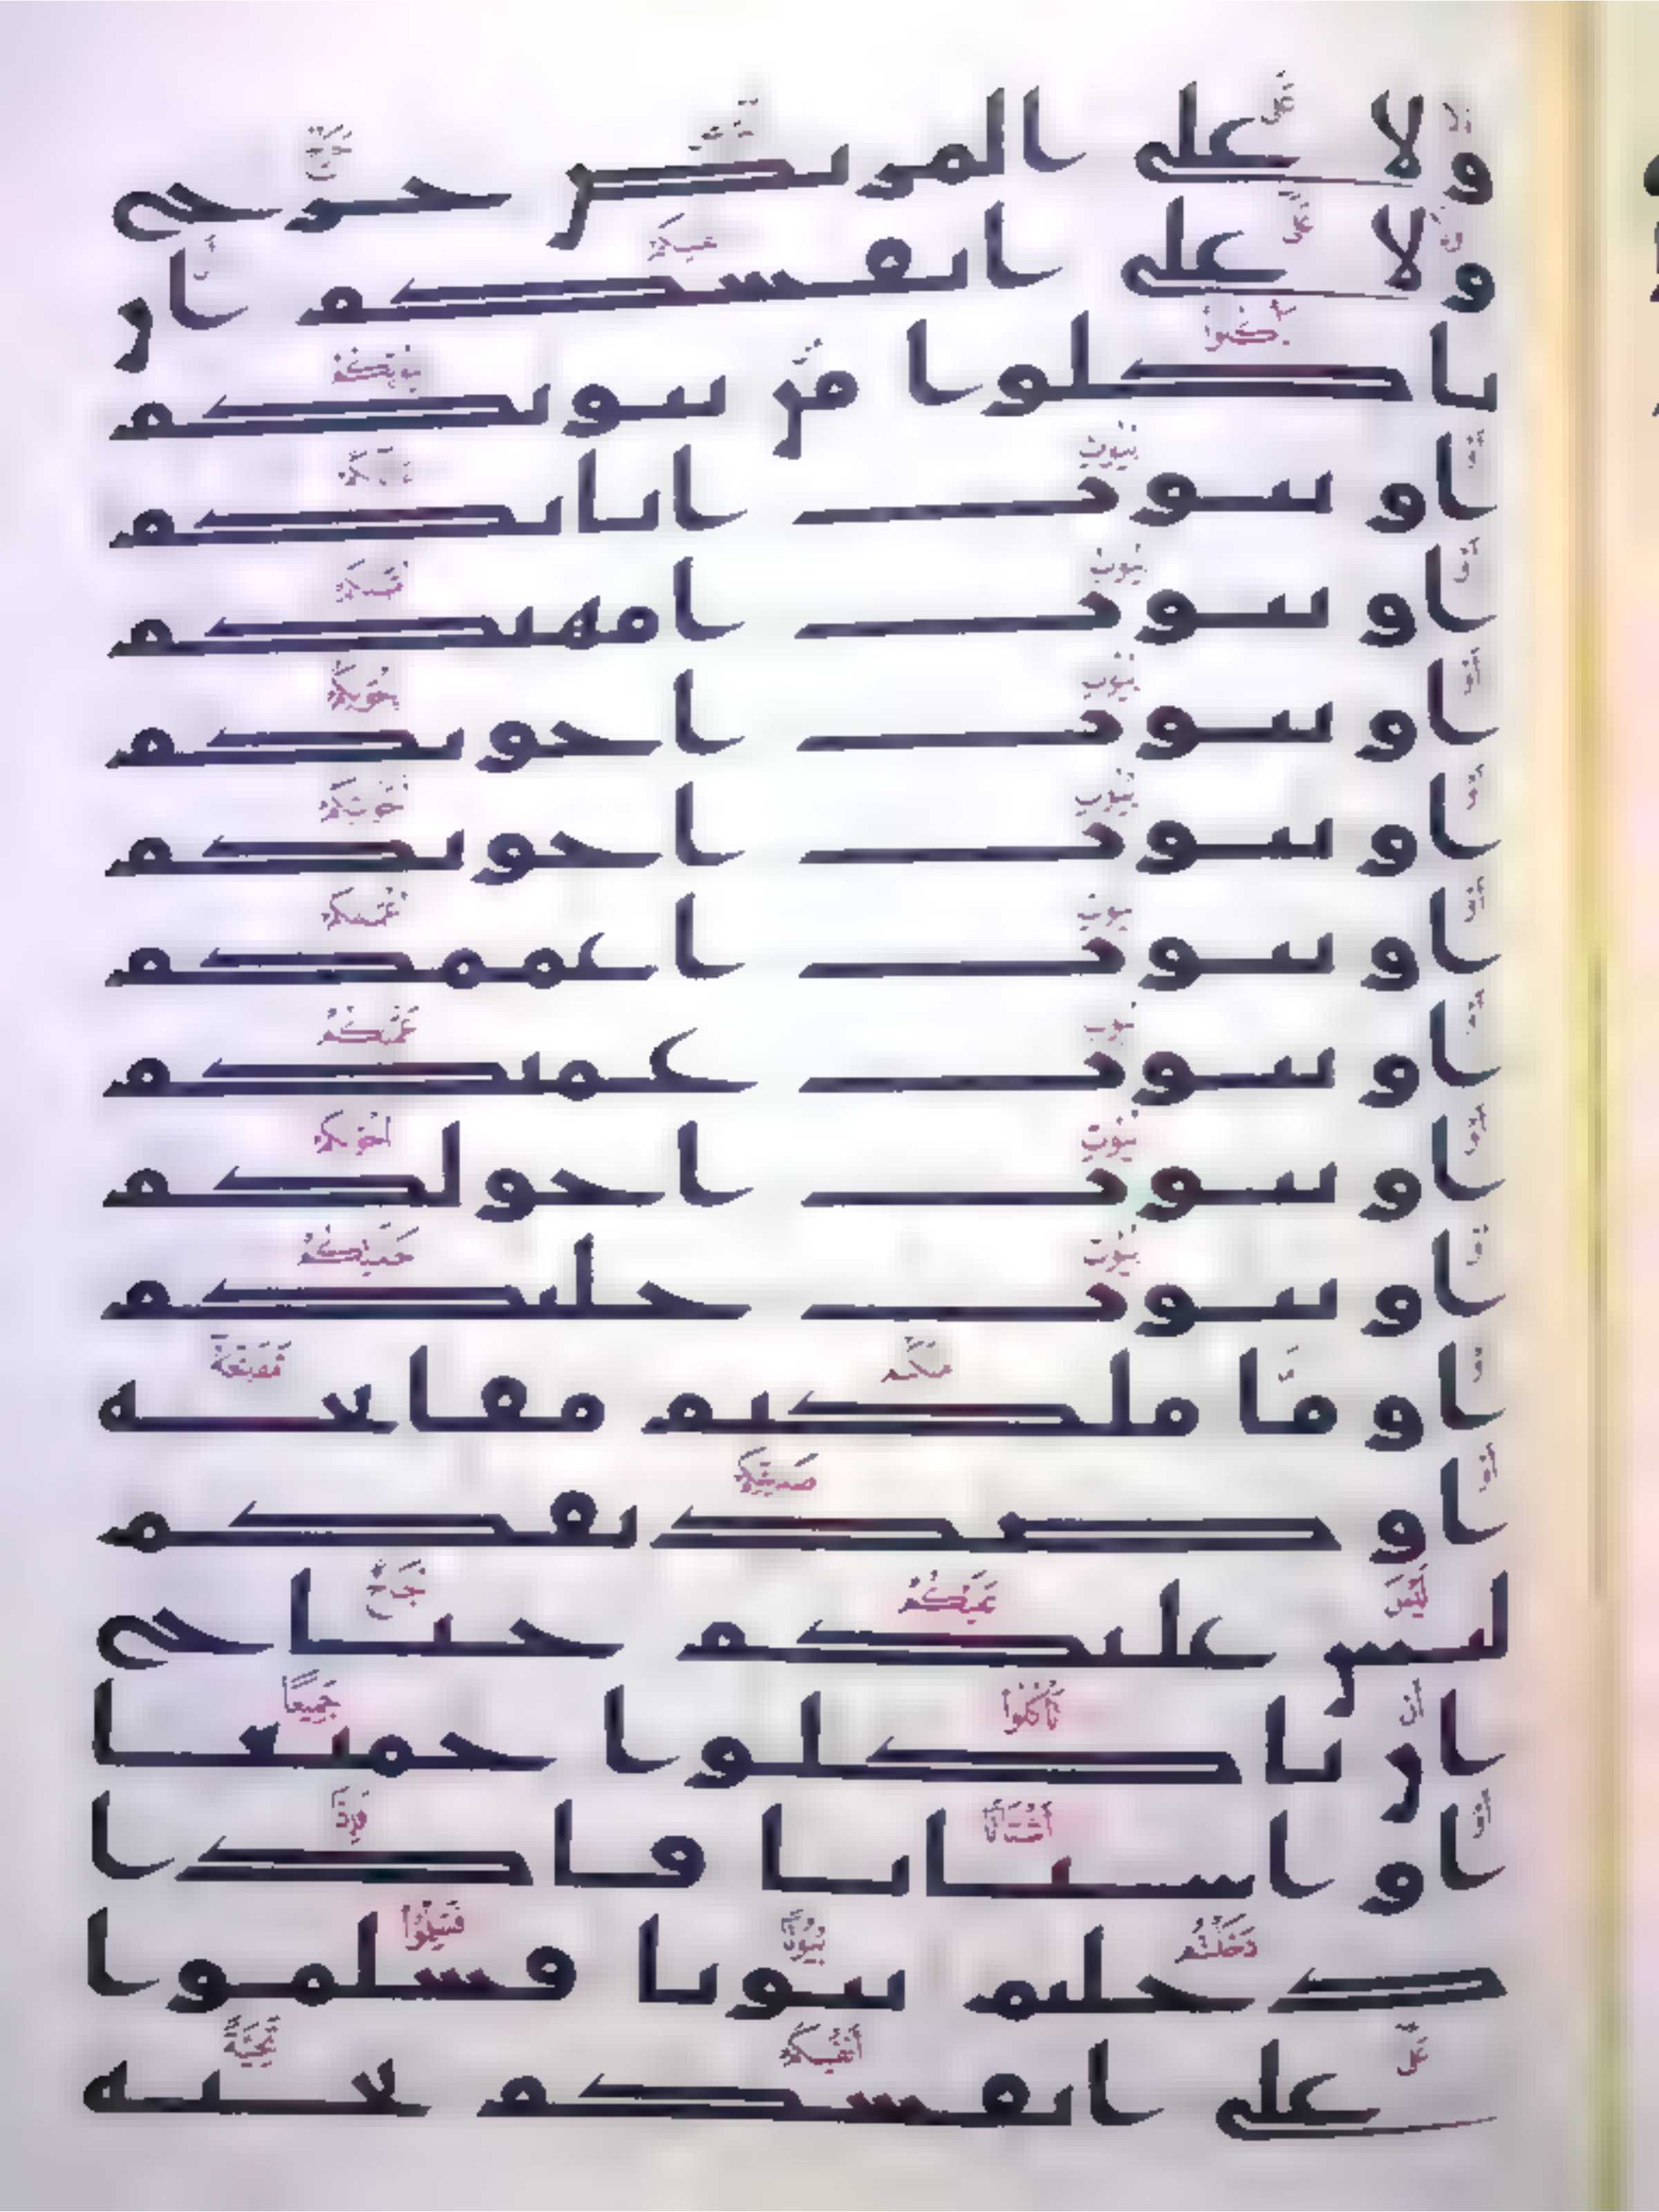 ولا على المريض حرج
ولا على انفسكم ان
ياكلوا من بيوتكم
او بيوت ابائكم
او بيوت امهتكم
او بيوت اخونكم
او بيوت اخوتكم
او بيوت اعممكم
او بيوت عمتكم
او بيوت اخولكم
او بيوت خلتكم
او ما ملكتم مفاتحه
او صديقكم
ليس عليكم جناح
ان تاكلوا جميعا
او اشتاتا فاذا
دخلتم بيوتا فسلموا
على انفسكم تحية